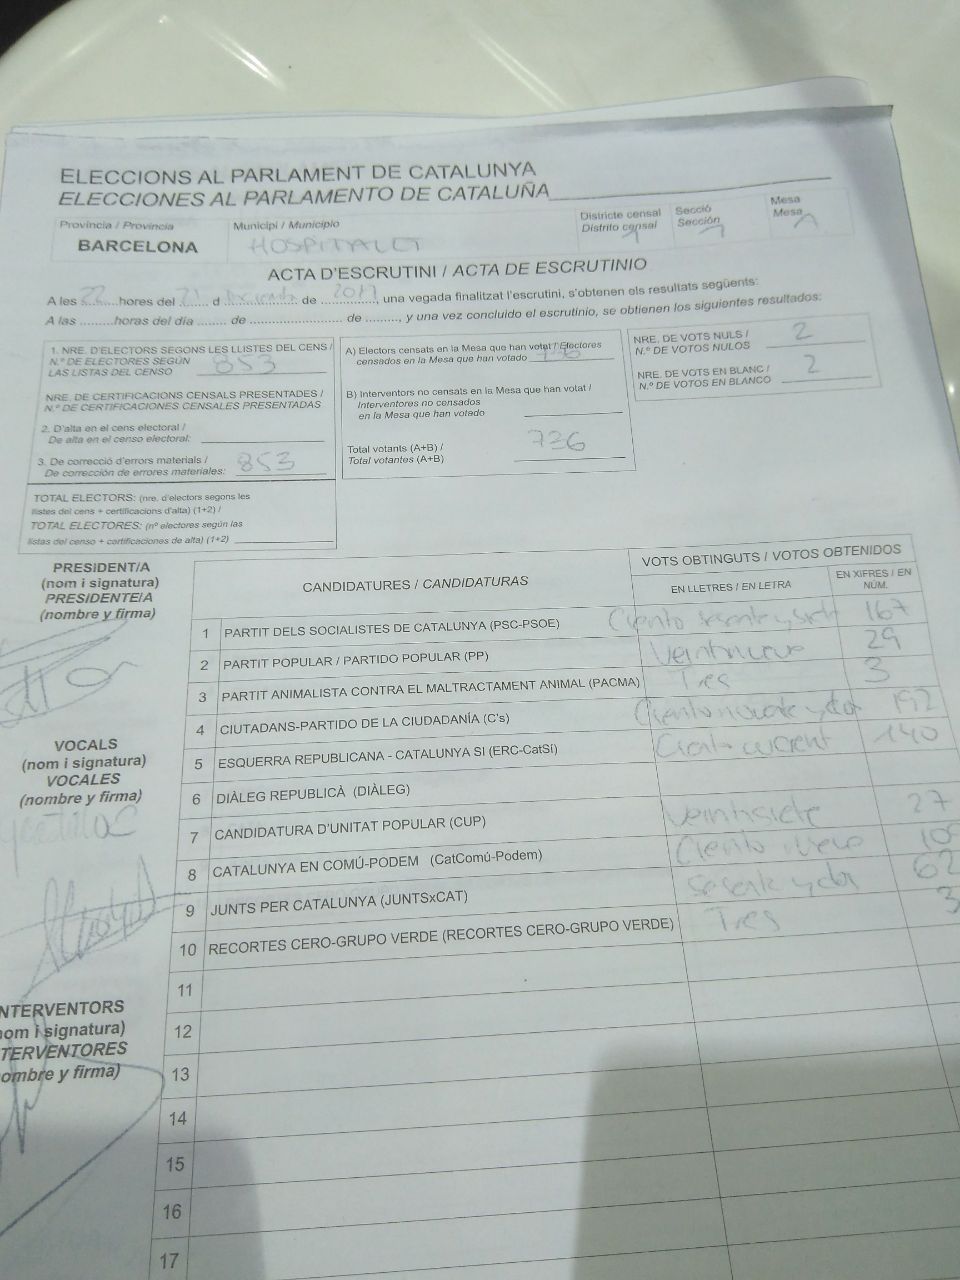 ELECCIONS AL PARLAMENT DE CATALUNYA
ELECCIONES AL PARLAMENTO DE CATALUÑA
Província / Provincia
BARCELONA
Municipi / Municipio
HOSPITALET
Districte censal
Distrito censal
1
Secció
Sección
1
Mesa
Mesa
ACTA D'ESCRUTINI / ACTA DE ESCRUTINIO
A les 22 hores del 21 d de 2017, una vegada finalitzat l'escrutini, s'obtenen els resultats següents:
A las ........horas del día ........ de ........................ de ........., y una vez concluido el escrutinio, se obtienen los siguientes resultados:
1. NRE. D'ELECTORS SEGONS LES LLISTES DEL CENS /
N.º DE ELECTORES SEGÚN
LAS LISTAS DEL CENSO 853
NRE. DE CERTIFICACIONS CENSALS PRESENTADES /
N.º DE CERTIFICACIONES CENSALES PRESENTADAS
2. D'alta en el cens electoral /
De alta en el censo electoral:
3. De correcció d'errors materials /
De corrección de errores materiales: 853
TOTAL ELECTORS: (nre. d'electors segons les
llistes del cens + certificacions d'alta) (1+2) /
TOTAL ELECTORES: (nº electores según las
listas del censo + certificaciones de alta) (1+2)
A) Electors censats en la Mesa que han votat / Electores
censados en la Mesa que han votado
B) Interventors no censats en la Mesa que han votat /
Interventores no censados
en la Mesa que han votado
Total votants (A+B) /
Total votantes (A+B)
736
NRE. DE VOTS NULS /
N.º DE VOTOS NULOS 2
NRE. DE VOTS EN BLANC /
N.º DE VOTOS EN BLANCO 2
PRESIDENT/A
(nom i signatura)
PRESIDENTE/A
(nombre y firma)
VOCALS
(nom i signatura)
VOCALES
(nombre y firma)
NTERVENTORS
nom i signatura)
TERVENTORES
ombre y firma)
CANDIDATURES / CANDIDATURAS
VOTS OBTINGUTS / VOTOS OBTENIDOS
EN LLETRES / EN LETRA
EN XIFRES / EN
NÚM.
1 PARTIT DELS SOCIALISTES DE CATALUNYA (PSC-PSOE) Ciento sesenta y siete 167
2 PARTIT POPULAR / PARTIDO POPULAR (PP) Veintinueve 29
3 PARTIT ANIMALISTA CONTRA EL MALTRACTAMENT ANIMAL (PACMA) Tres 3
4 CIUTADANS-PARTIDO DE LA CIUDADANÍA (C's) Ciento noventa y dos 192
5 ESQUERRA REPUBLICANA - CATALUNYA SÍ (ERC-CatSí) Ciento 140
6 DIÀLEG REPUBLICÀ (DIÀLEG)
7 CANDIDATURA D'UNITAT POPULAR (CUP) Veintisiete 27
8 CATALUNYA EN COMÚ-PODEM (CatComú-Podem) Ciento nueve
9 JUNTS PER CATALUNYA (JUNTSxCAT) sesenta y dos 62
10 RECORTES CERO-GRUPO VERDE (RECORTES CERO-GRUPO VERDE) Tres 3
11
12
13
14
15
16
17